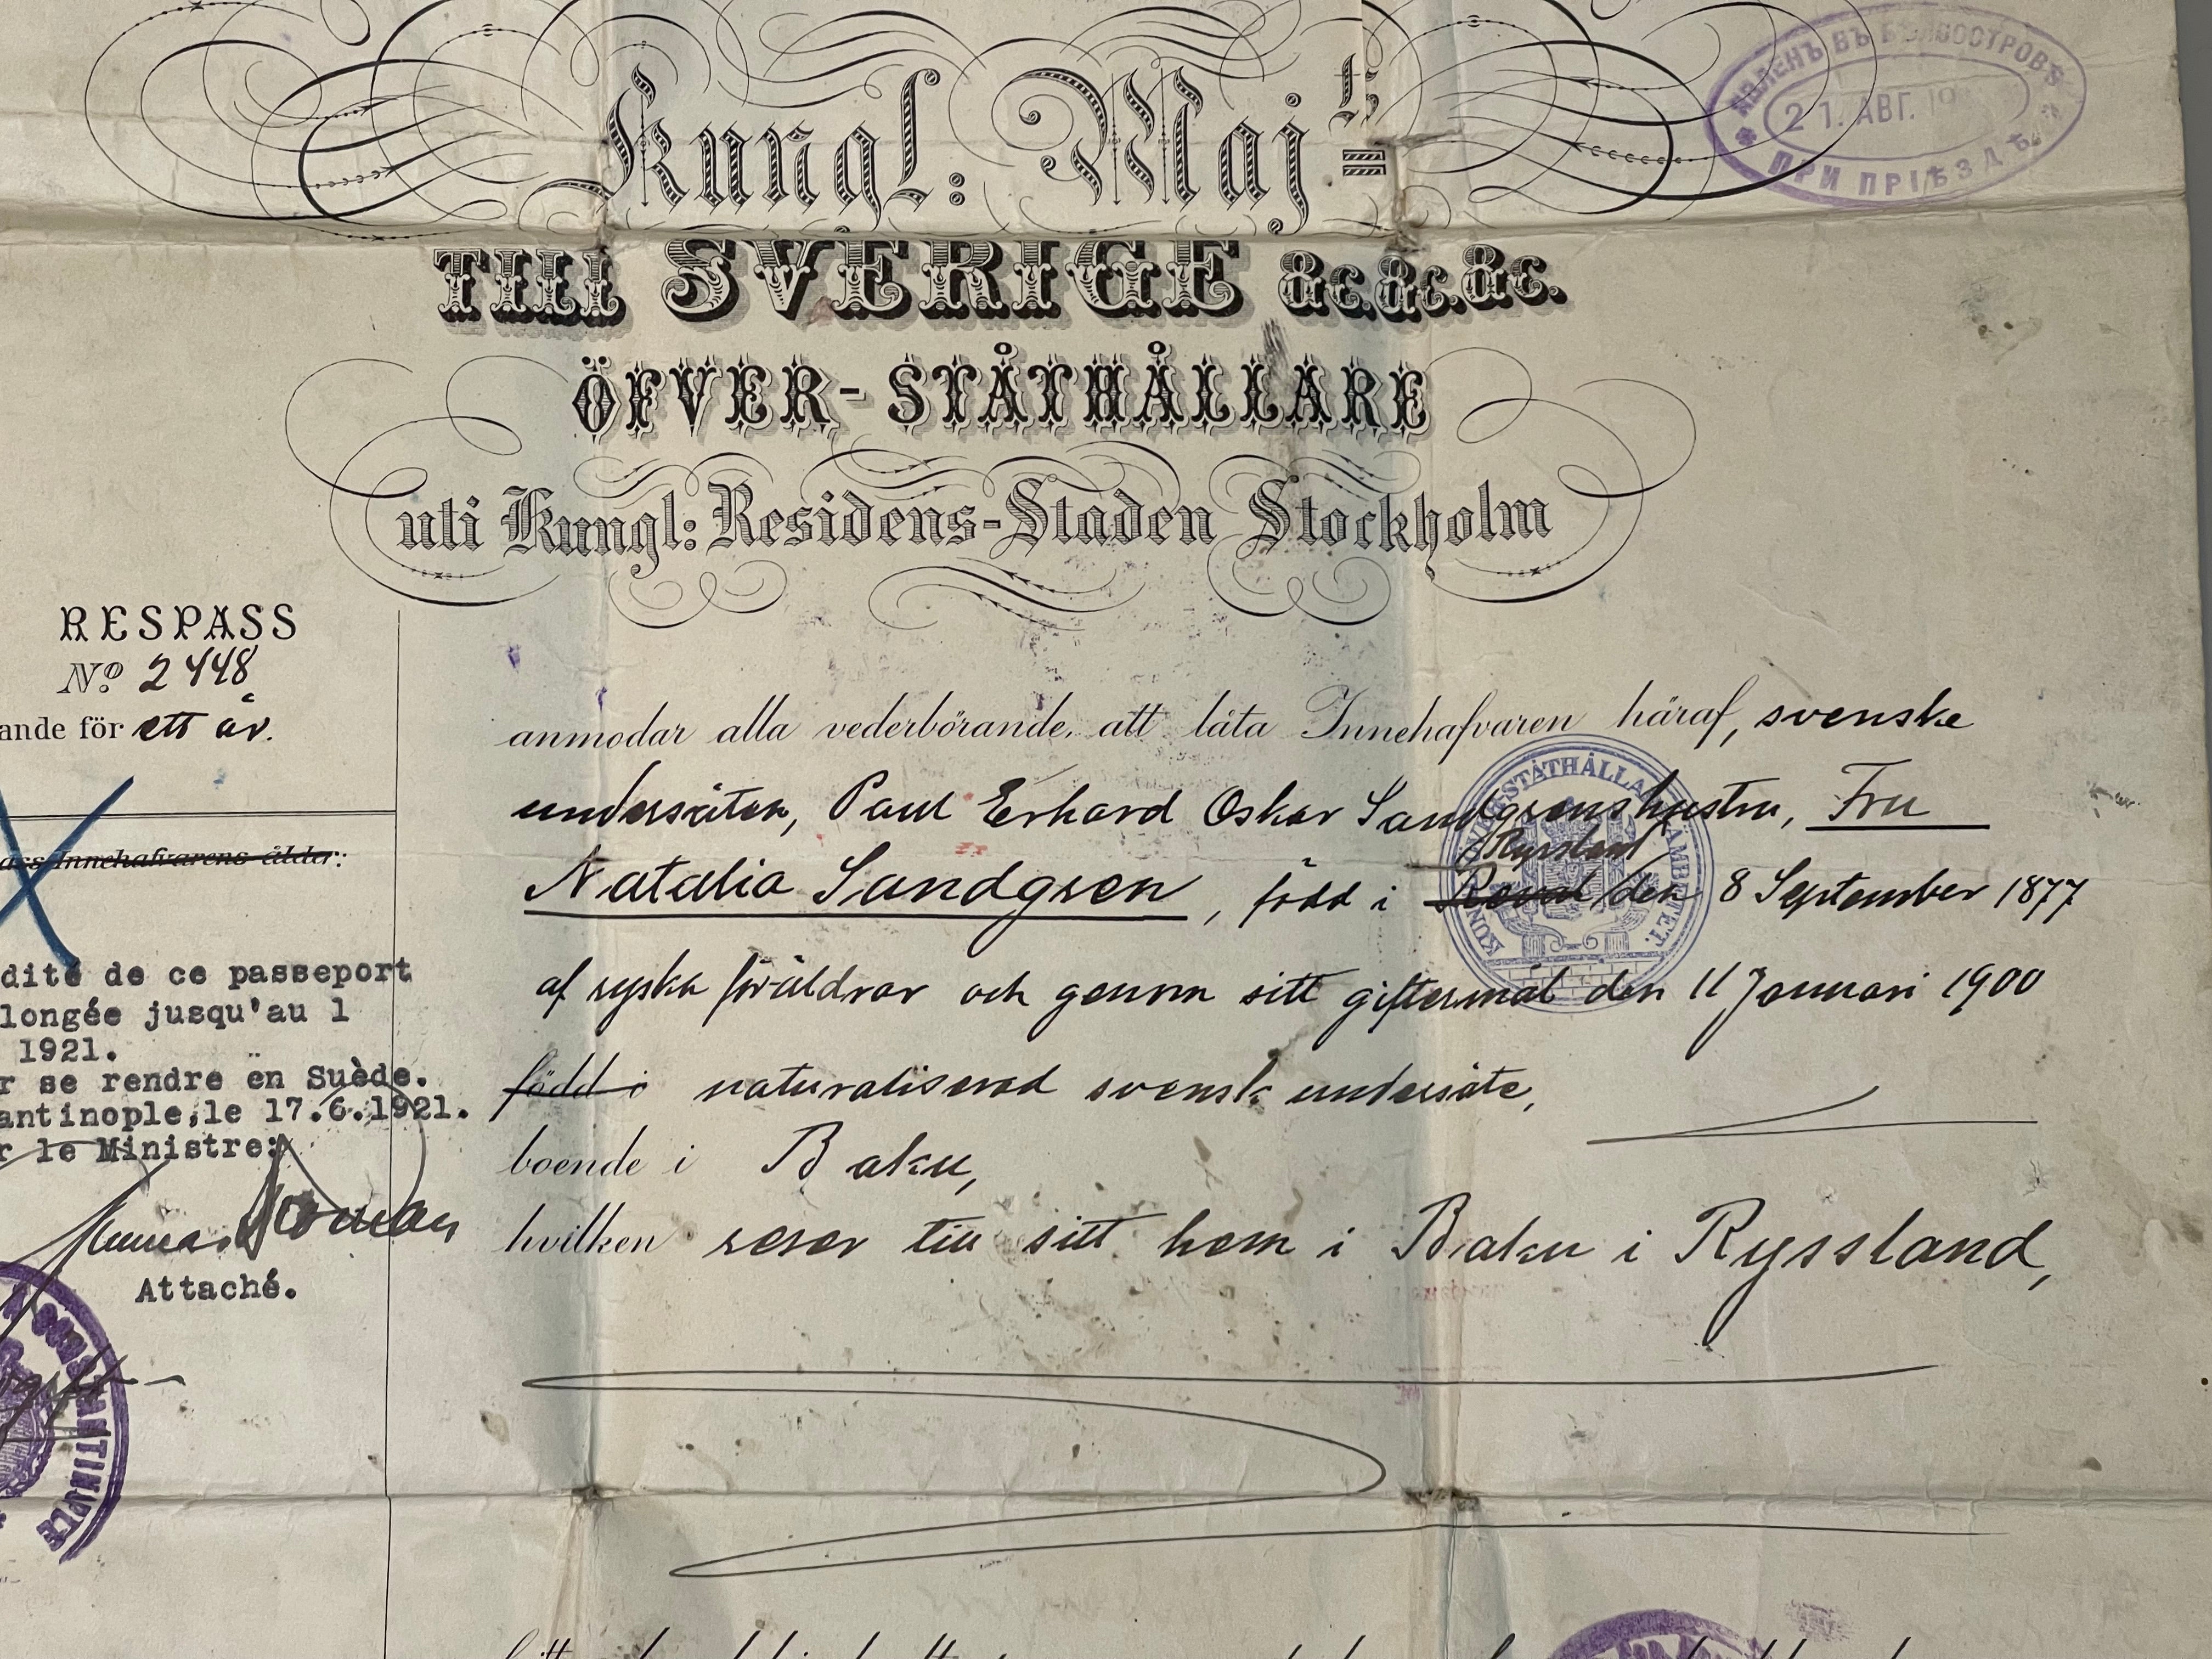 Kungl: Maj:ts
TILL SVERIGE &c.&c.&c.
ÖFVER-STÅTHÅLLARE
uti Kungl: Residens-Staden Stockholm
ЯВЛЕНЪ ВЪ БѢЛООСТРОВѢ
21. АВГ. 19
ПРИ ПРІѢЗДѢ
RESPASS
No 2448
ande för ett år.
ass-Innehafvarens ålder:
dité de ce passeport
longée jusqu'au 1
1921.
r se rendre en Suède.
antinople, le 17.6.1921.
r le Ministre:
Attaché.
NTINOPLE
anmodar alla vederbörande, att låta Innehafvaren häraf, svenske
undersåten, Paul Erhard Oskar Sandgrens hustru, Fru
Ryssland
Natalia Sandgren, född i Reval den 8 September 1877
af ryska föräldrar och genom sitt giftermål den 11 Januari 1900
född i naturaliserad svensk undersåte,
boende i Baku,
hvilken reser till sitt hem i Baku i Ryssland,
KUNGL. ÖFVERSTÅTHÅLLAREÄMBETET.